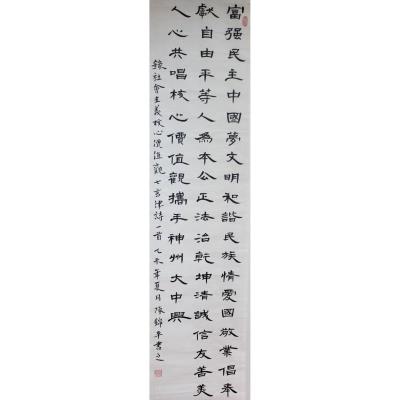 富強民主中國夢文明和諧民族情愛國敬業倡奉
獻自由平等人為本公正法治乾坤清誠信友善美
人心共唱核心價值觀攜手神州大中興
錄社會主義核心價值觀七言律詩一首乙未年夏月陳錦平書之